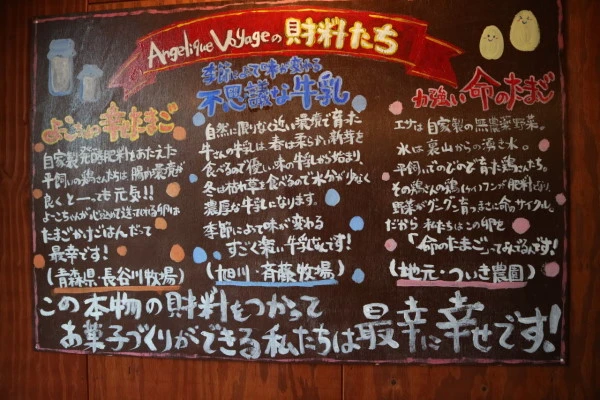 Angelique Voyageの財料たち
よこちゃんの幸たまご
自家製発酵肥料をあたえた
平飼いの鶏さんたちは腸内環境が
良くとーっても元気!!
よこちゃんが心込めて送ってくれる卵は
たまごかけごはんだって
最幸です!
(青森県 長谷川牧場)
季節によって味が変わる
不思議な牛乳
自然に限りなく近い環境で育った
牛さんの牛乳は、春は柔らかい新芽を
食べるので優しい味の牛乳から始まり、
冬は牧草を食べるので水分が少なく
濃厚な牛乳になります。
季節によって味が変わる
すごく楽しい牛乳なんです!
(旭川・斉藤牧場)
力強い 命のたまご
エサは自家製の無農薬野菜。
水は裏山からの湧き水。
平飼いでのびのび育った鶏さんたち。
その鶏さんの鶏ふんが肥料になり、
野菜がグングン育つまさに命のサイクル
だから 私たちはこの卵を
「命のたまご」ってよんでるんです!
(地元・ついき農園)
この本物の財料をつかって
お菓子づくりができる私たちは最幸に幸せです!